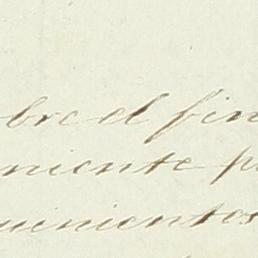 bre el fin
niente p
uenientos